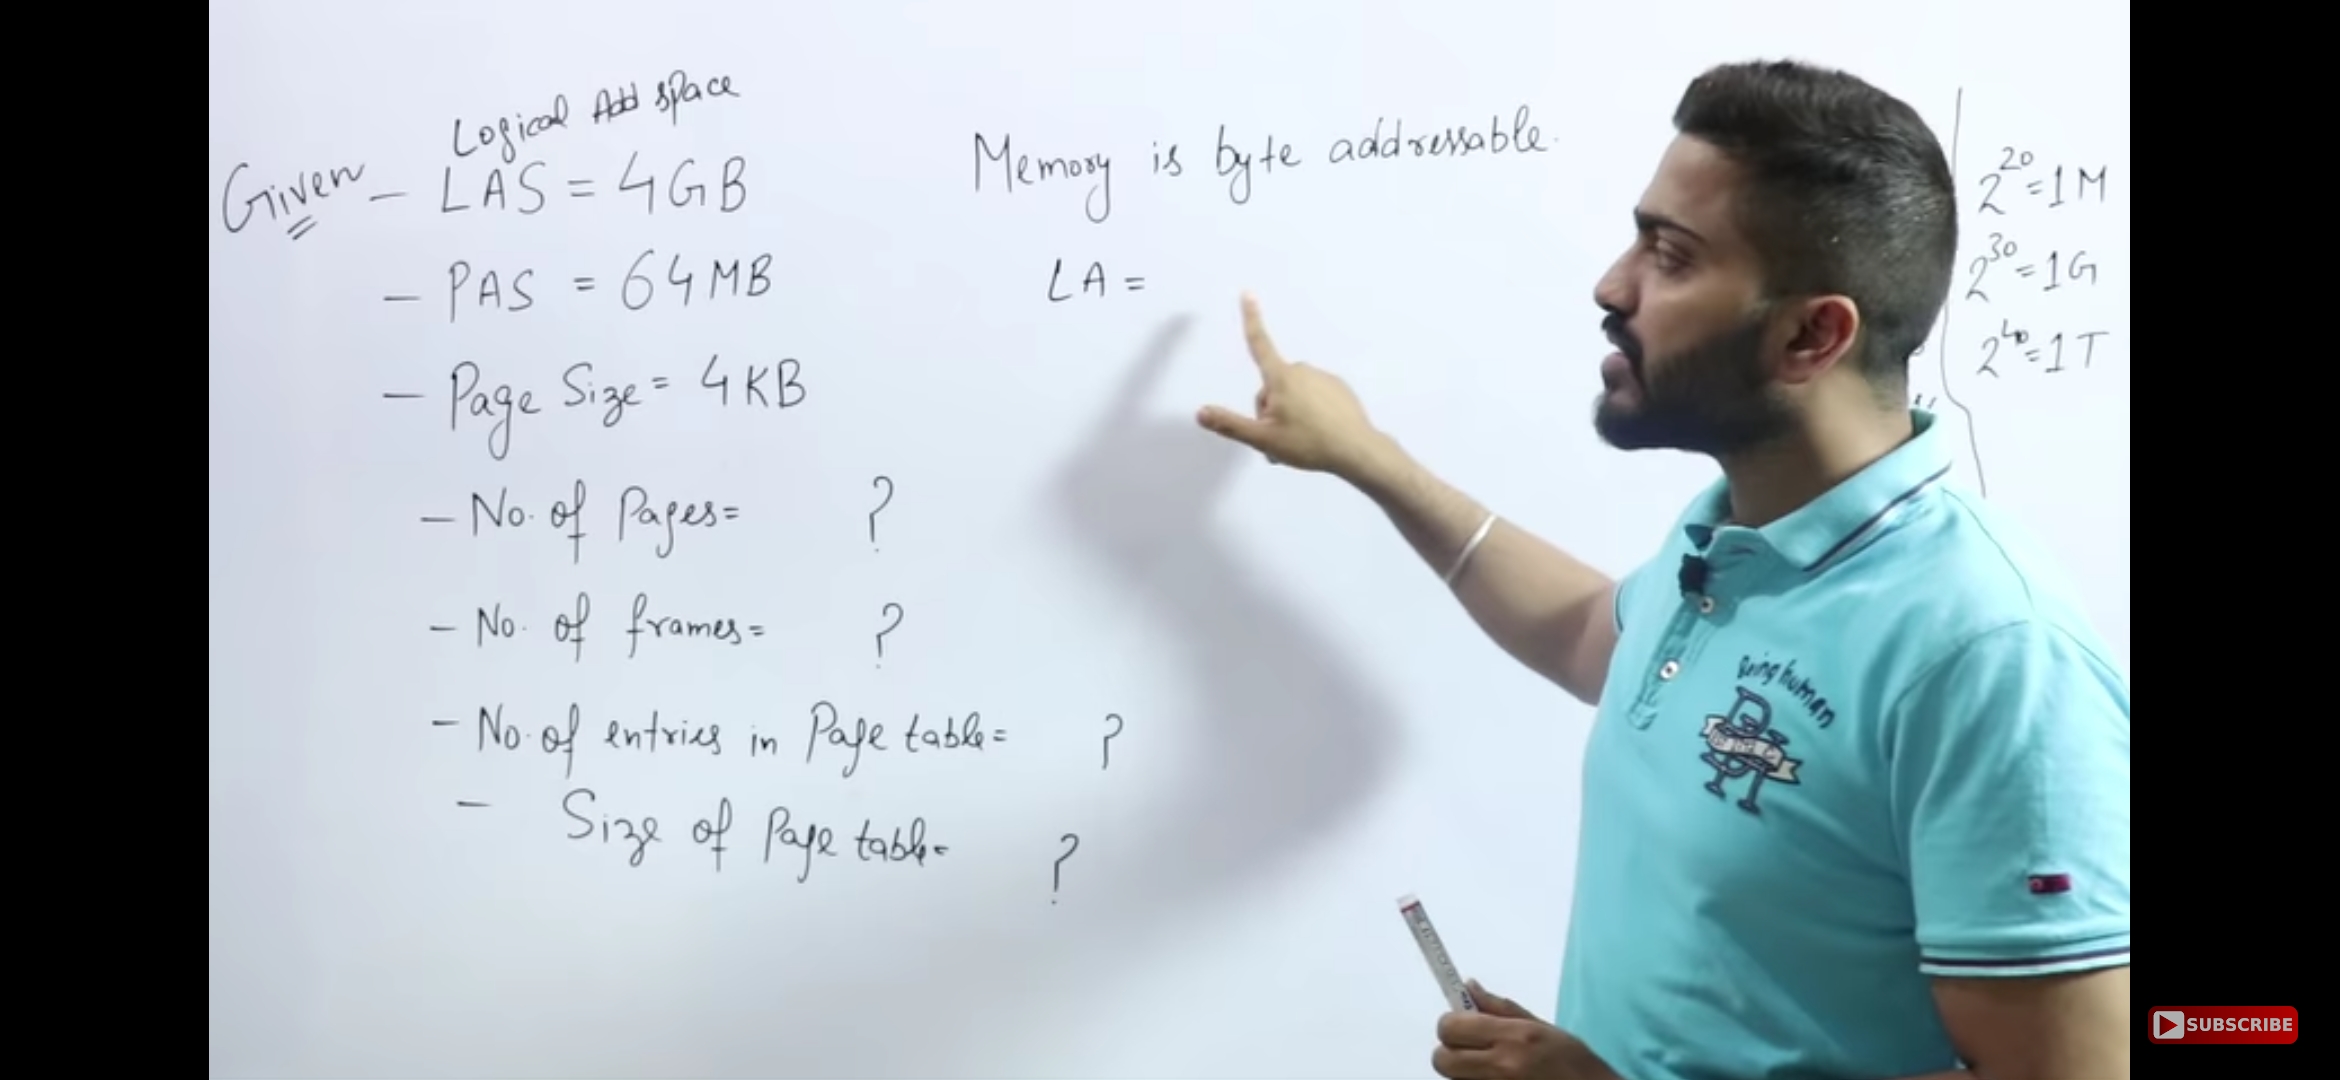 Logical Add space
Given - LAS = 4GB
- PAS = 64MB
- Page Size = 4KB
- No. of Pages = ?
- No. of frames = ?
- No. of entries in Page table = ?
- Size of Page table = ?
Memory is byte addressable.
LA =
2^20 = 1M
2^30 = 1G
2^40 = 1T
Being human
SUBSCRIBE